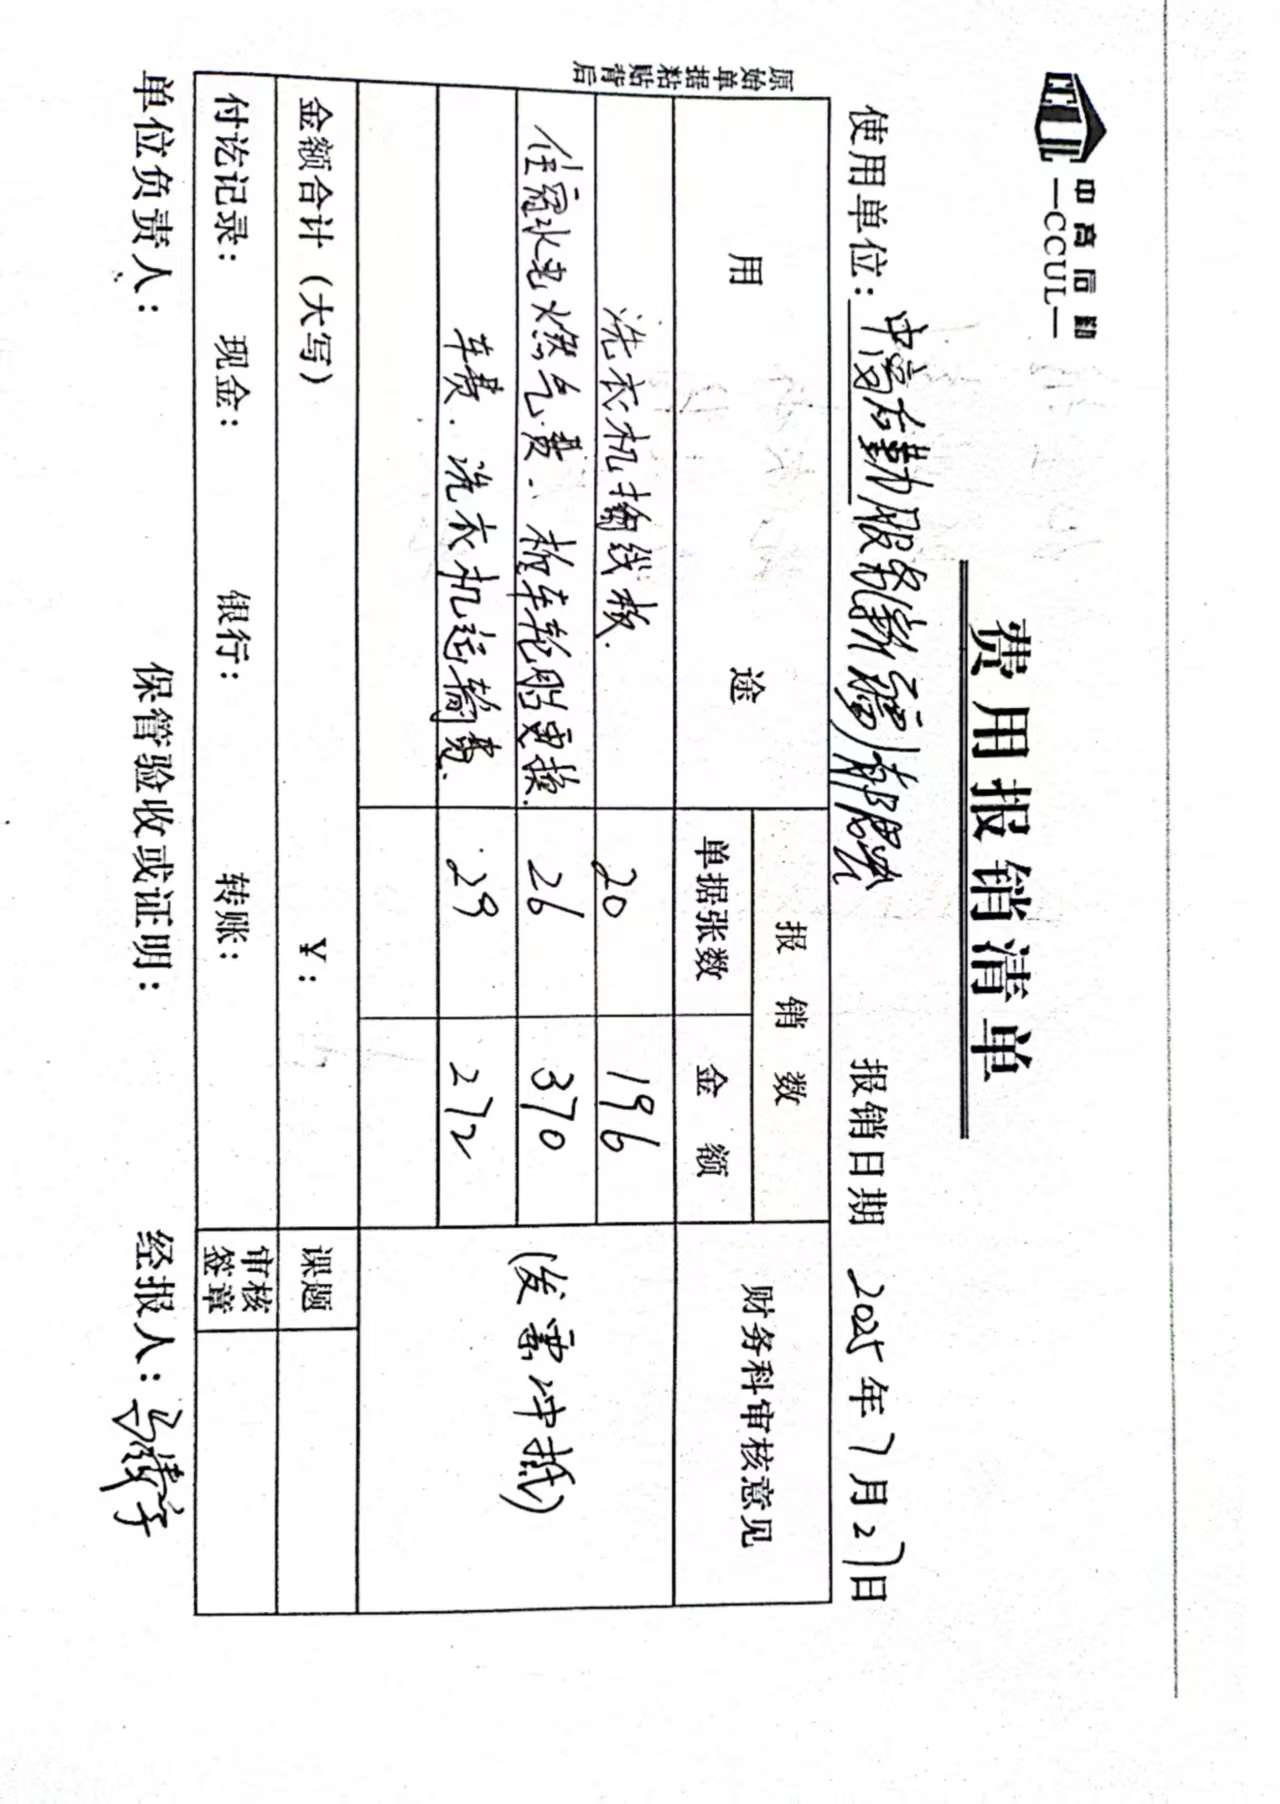 中高后勤
—CCUL—
费用报销清单
使用单位：中高后勤服务(新疆)有限公 报销日期 2025年7月27日
原始单据粘贴背后
用 途 报销数 财务科审核意见
单据张数 金额
洗衣机 20 196
住宿水电燃气费. 板车轮胎更换. 26 370 (发票冲抵)
车费. 洗衣机运输费. 29 272
金额合计（大写） ￥： 课题
付讫记录： 现金： 银行： 转账： 审核签章
单位负责人： 保管验收或证明： 经报人：